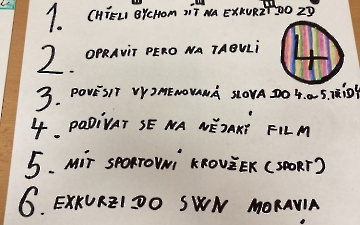 1. CHTĚLI BYCHOM JÍT NA EXKURZI DO ZD
2. OPRAVIT PERO NA TABULI
3. POVĚSIT VYJMENOVANÁ SLOVA DO 4. a 5. TŘÍDY
4. PODÍVAT SE NA NĚJAKÍ FILM
5. MÍT SPORTOVNÍ KROUŽEK (SPORT)
6. EXKURZI DO SWN MORAVIA